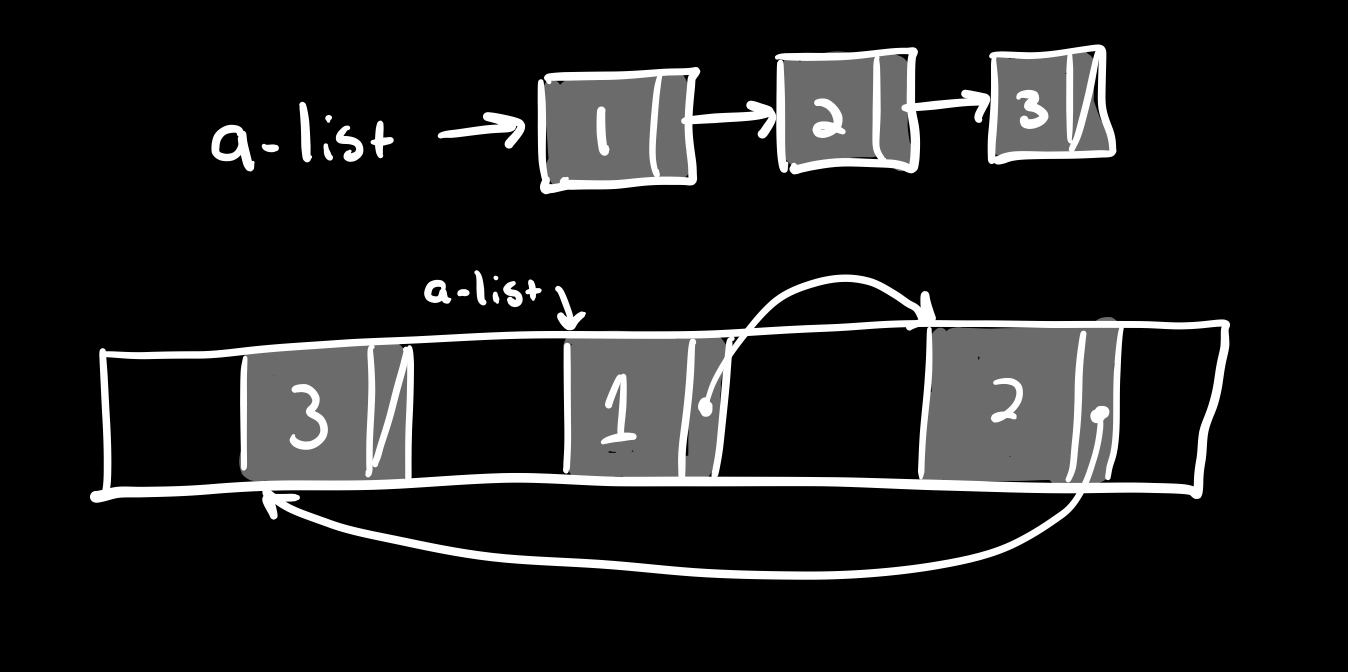 a-list 1 2 3
a-list
3 1 2